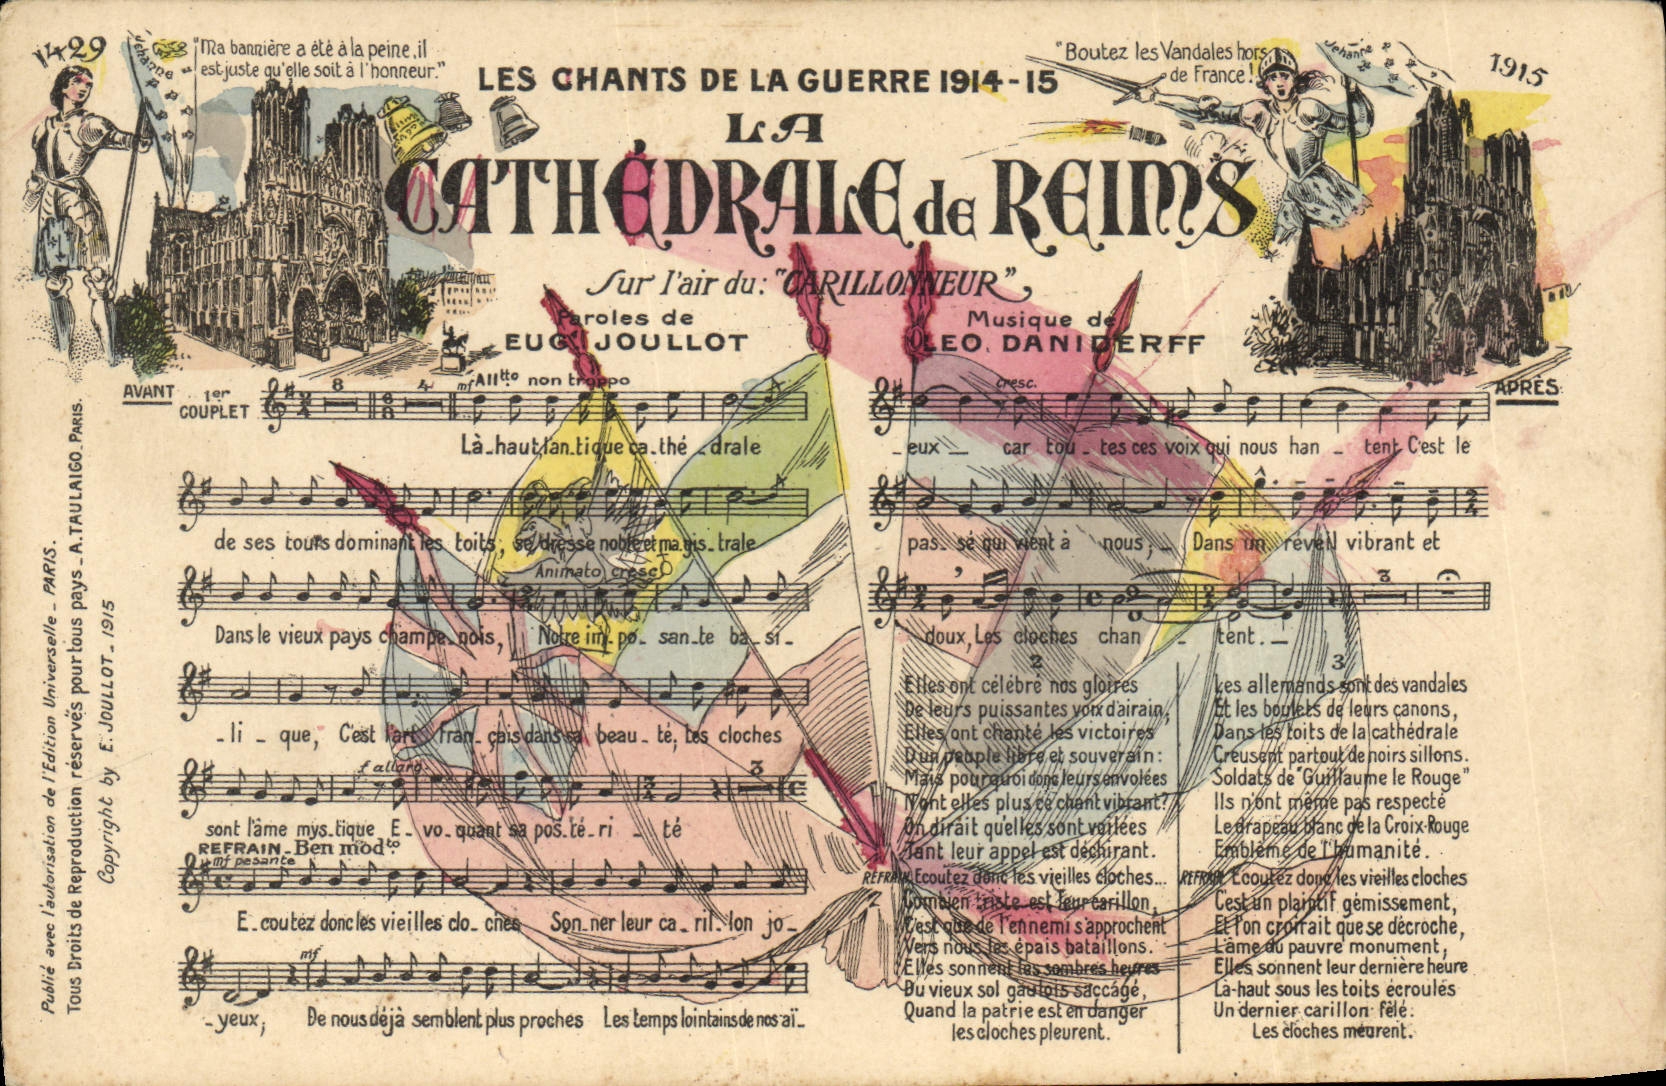 1429
Jehanne
"Ma bannière a été à la peine, il
est juste qu'elle soit à l'honneur."
LES CHANTS DE LA GUERRE 1914-15
"Boutez les Vandales hors
de France!"
Jehanne
1915
LA
CATHÉDRALE de REIMS
Sur l'air du: "CARILLONNEUR"
Paroles de
EUG. JOULLOT
Musique de
LEO. DANIDERFF
AVANT
APRÈS
1er
COUPLET
8
4
mf Alltto non troppo
Là-haut, l'an-tique ca-thé-drale
de ses tours dominant les toits, se dresse noble et ma-gis-trale
Animato cresc
Dans le vieux pays champe-nois, Notre im-po-san-te ba-si-
-li-que, C'est l'art fran-çais dans sa beau-té, Les cloches
f allarg.
3
sont l'âme mys-tique E-vo-quant sa pos-té-ri-té
REFRAIN-Ben modto
mf pesante
E-coutez donc les vieilles clo-ches Son-ner leur ca-ril-lon jo-
mf
-yeux; De nous déjà semblent plus proches Les temps lointains de nos aï-
cresc.
-eux- car tou-tes ces voix qui nous han-tent C'est le
pas-sé qui vient à nous;- Dans un réveil vibrant et
3
doux, Les cloches chan-tent.-
2
Elles ont célébré nos gloires
De leurs puissantes voix d'airain,
Elles ont chanté les victoires
D'un peuple libre et souverain:
Mais pourquoi donc leurs envolées
N'ont elles plus ce chant vibrant?
On dirait qu'elles sont voilées
Tant leur appel est déchirant.
REFRAIN Ecoutez donc les vieilles cloches...
Combien triste est leur carillon,
C'est que de l'ennemi s'approchent
Vers nous les épais bataillons.
Elles sonnent les sombres heures
Du vieux sol gaulois saccagé,
Quand la patrie est en danger
les cloches pleurent.
3
Les allemands sont des vandales
Et les boulets de leurs canons,
Dans les toits de la cathédrale
Creusent partout de noirs sillons.
Soldats de "Guillaume le Rouge"
Ils n'ont même pas respecté
Le drapeau blanc de la Croix-Rouge
Emblème de l'humanité.
REFRAIN Ecoutez donc les vieilles cloches
C'est un plaintif gémissement,
Et l'on croirait que se décroche,
L'âme du pauvre monument,
Elles sonnent leur dernière heure
Là-haut sous les toits écroulés
Un dernier carillon fêlé:
Les cloches meurent.
Publié avec l'autorisation de l'Edition Universelle - PARIS.
Tous Droits de Reproduction réservés pour tous pays - A. TAULAIGO. PARIS.
Copyright by E. JOULLOT - 1915